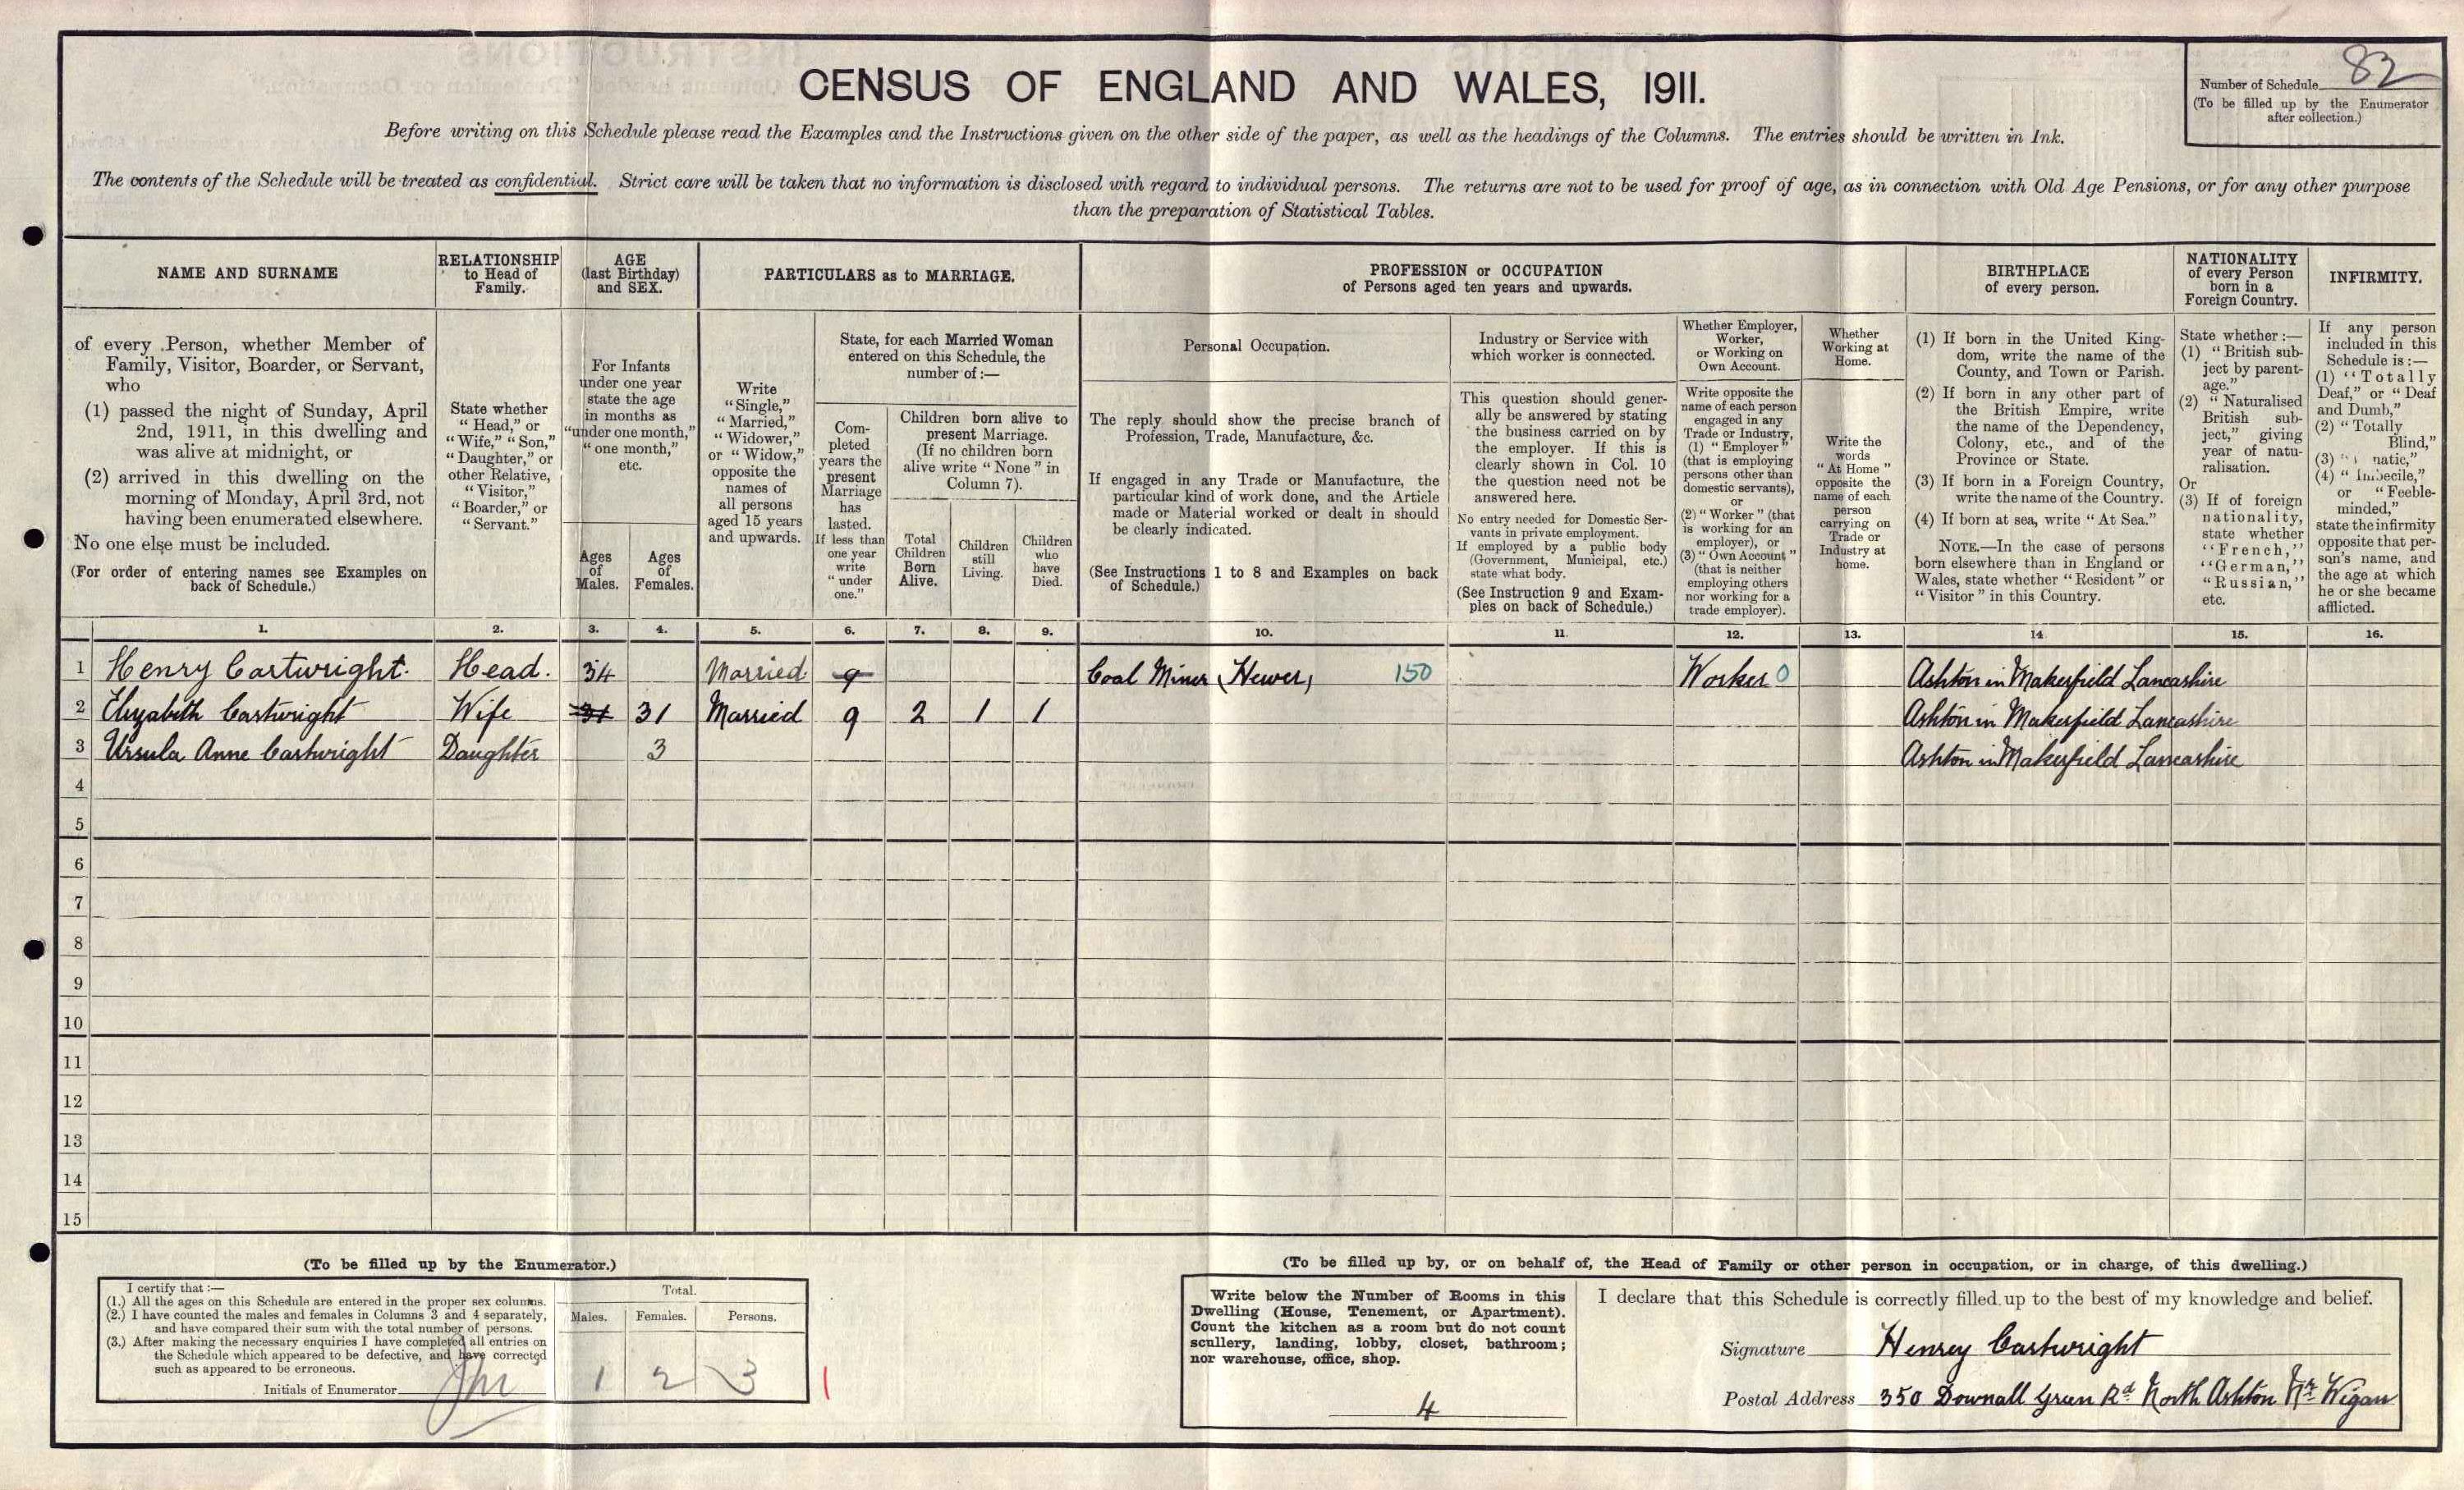 CENSUS OF ENGLAND AND WALES, 1911.
Number of Schedule 82
(To be filled up by the Enumerator
after collection.)
Before writing on this Schedule please read the Examples and the Instructions given on the other side of the paper, as well as the headings of the Columns. The entries should be written in Ink.
The contents of the Schedule will be treated as confidential. Strict care will be taken that no information is disclosed with regard to individual persons. The returns are not to be used for proof of age, as in connection with Old Age Pensions, or for any other purpose
than the preparation of Statistical Tables.
NAME AND SURNAME
of every Person, whether Member of
Family, Visitor, Boarder, or Servant,
who
(1) passed the night of Sunday, April
2nd, 1911, in this dwelling and
was alive at midnight, or
(2) arrived in this dwelling on the
morning of Monday, April 3rd, not
having been enumerated elsewhere.
No one else must be included.
(For order of entering names see Examples on
back of Schedule.)
RELATIONSHIP
to Head of
Family.
State whether
"Head," or
"Wife," "Son,"
"Daughter," or
other Relative,
"Visitor,"
"Boarder," or
"Servant."
AGE
(last Birthday)
and SEX.
For Infants
under one year
state the age
in months as
"under one month,"
"one month,"
etc.
Ages
of
Males.
Ages
of
Females.
PARTICULARS as to MARRIAGE.
Write
"Single,"
"Married,"
"Widower,"
or "Widow,"
opposite the
names of
all persons
aged 15 years
and upwards.
State, for each Married Woman
entered on this Schedule, the
number of:—
Com-
pleted
years the
present
Marriage
has
lasted.
If less than
one year
write
"under
one."
Children born alive to
present Marriage.
(If no children born
alive write "None" in
Column 7).
Total
Children
Born
Alive.
Children
still
Living.
Children
who
have
Died.
PROFESSION or OCCUPATION
of Persons aged ten years and upwards.
Personal Occupation.
The reply should show the precise branch of
Profession, Trade, Manufacture, &c.
If engaged in any Trade or Manufacture, the
particular kind of work done, and the Article
made or Material worked or dealt in should
be clearly indicated.
(See Instructions 1 to 8 and Examples on back
of Schedule.)
Industry or Service with
which worker is connected.
This question should gener-
ally be answered by stating
the business carried on by
the employer. If this is
clearly shown in Col. 10
the question need not be
answered here.
No entry needed for Domestic Ser-
vants in private employment.
If employed by a public body
(Government, Municipal, etc.)
state what body.
(See Instruction 9 and Exam-
ples on back of Schedule.)
Whether Employer,
Worker,
or Working on
Own Account.
Write opposite the
name of each person
engaged in any
Trade or Industry,
(1) "Employer"
(that is employing
persons other than
domestic servants),
or
(2) "Worker" (that
is working for an
employer), or
(3) "Own Account"
(that is neither
employing others
nor working for a
trade employer).
Whether
Working at
Home.
Write the
words
"At Home"
opposite the
name of each
person
carrying on
Trade or
Industry at
home.
BIRTHPLACE
of every person.
(1) If born in the United King-
dom, write the name of the
County, and Town or Parish.
(2) If born in any other part of
the British Empire, write
the name of the Dependency,
Colony, etc., and of the
Province or State.
(3) If born in a Foreign Country,
write the name of the Country.
(4) If born at sea, write "At Sea."
NOTE.—In the case of persons
born elsewhere than in England or
Wales, state whether "Resident" or
"Visitor" in this Country.
NATIONALITY
of every Person
born in a
Foreign Country.
State whether:—
(1) "British sub-
ject by parent-
age."
(2) "Naturalised
British sub-
ject," giving
year of natu-
ralisation.
Or
(3) If of foreign
nationality,
state whether
"French,"
"German,"
"Russian,"
etc.
INFIRMITY.
If any person
included in this
Schedule is:—
(1) "Totally
Deaf," or "Deaf
and Dumb,"
(2) "Totally
Blind,"
(3) natic,"
(4) "Imbecile,"
or "Feeble-
minded,"
state the infirmity
opposite that per-
son's name, and
the age at which
he or she became
afflicted.
1. 2. 3. 4. 5. 6. 7. 8. 9. 10. 11. 12. 13. 14 15. 16.
1 Henry Cartwright. Head. 34 Married 9 Coal Miner (Hewer) 150 Worker 0 Ashton in Makerfield Lancashire
2 Elizabith Cartwright Wife 31 31 Married 9 2 1 1 Ashton in Makerfield Lancashire
3 Ursula Anne Cartwright Daughter 3 Ashton in Makerfield Lancashire
4
5
6
7
8
9
10
11
12
13
14
15
(To be filled up by the Enumerator.)
I certify that:—
(1.) All the ages on this Schedule are entered in the proper sex columns.
(2.) I have counted the males and females in Columns 3 and 4 separately,
and have compared their sum with the total number of persons.
(3.) After making the necessary enquiries I have completed all entries on
the Schedule which appeared to be defective, and have corrected
such as appeared to be erroneous.
Initials of Enumerator
Total.
Males. Females. Persons.
1 2 3
(To be filled up by, or on behalf of, the Head of Family or other person in occupation, or in charge, of this dwelling.)
Write below the Number of Rooms in this
Dwelling (House, Tenement, or Apartment).
Count the kitchen as a room but do not count
scullery, landing, lobby, closet, bathroom;
nor warehouse, office, shop.
4
I declare that this Schedule is correctly filled up to the best of my knowledge and belief.
Signature Henrey Cartwright
Postal Address 350 Downall Green Rd North Ashton Nr Wigan